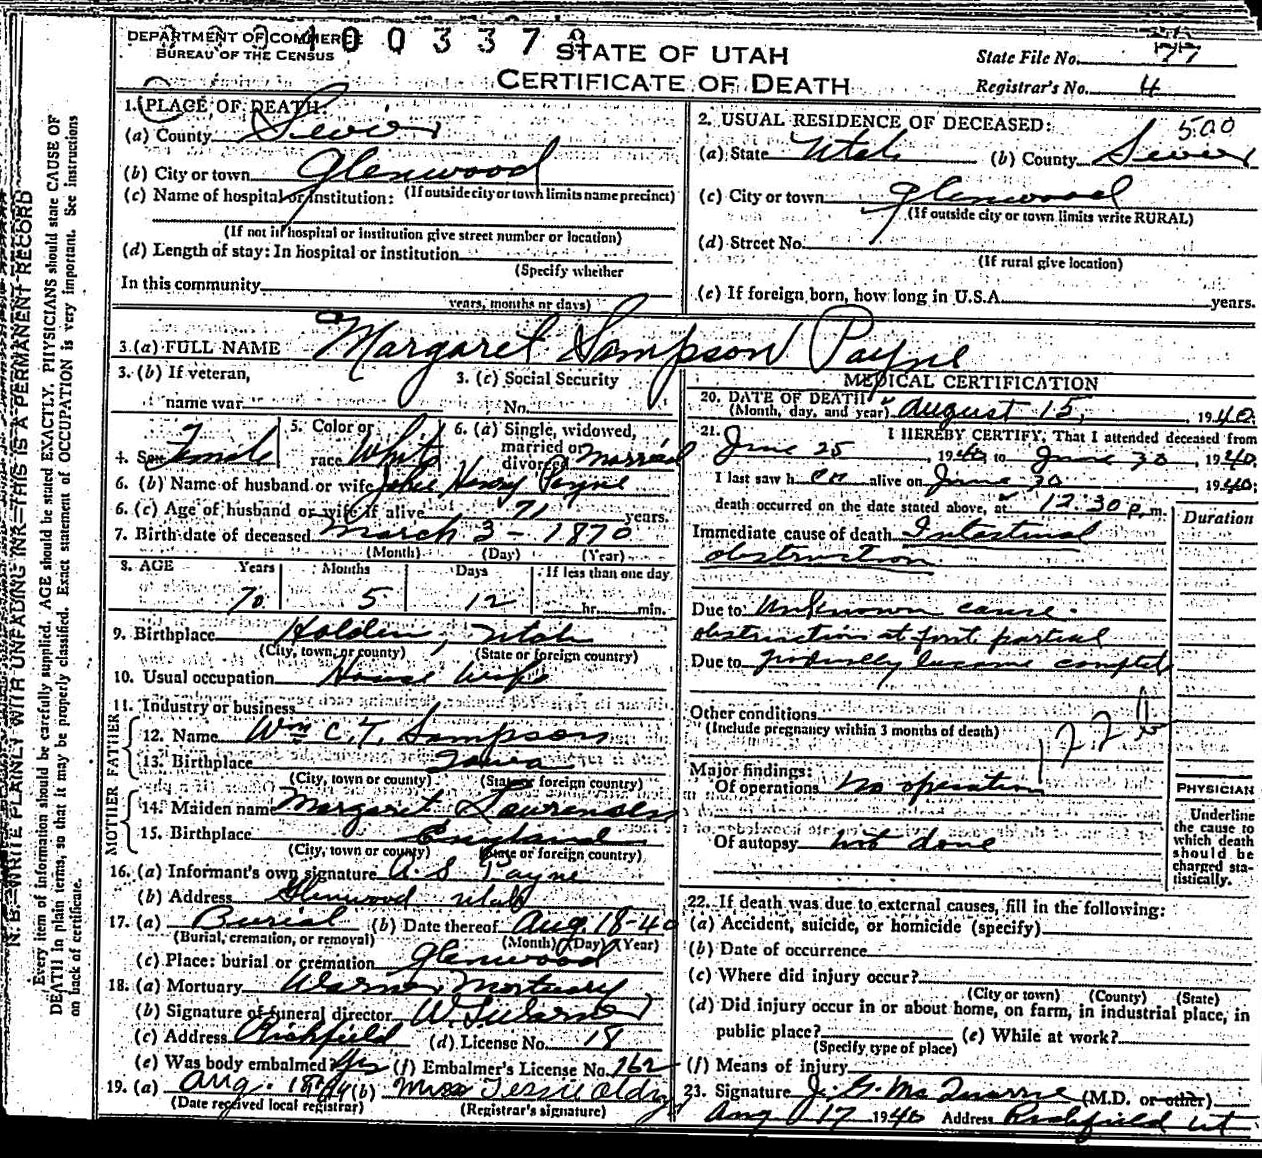 DEPARTMENT OF COMMERCE
BUREAU OF THE CENSUS
STATE OF UTAH
CERTIFICATE OF DEATH
State File No. 77
Registrar's No. 4
1. PLACE OF DEATH:
(a) County Sevier
(b) City or town Glenwood
(If outside city or town limits name precinct)
(c) Name of hospital or institution:
(If not in hospital or institution give street number or location)
(d) Length of stay: In hospital or institution
(Specify whether
In this community
years, months or days)
2. USUAL RESIDENCE OF DECEASED: 500
(a) State Utah (b) County Sevier
(c) City or town Glenwood
(If outside city or town limits write RURAL)
(d) Street No.
(If rural give location)
(e) If foreign born, how long in U.S.A. years.
3. (a) FULL NAME Margaret Sampson Payne
3. (b) If veteran,
name war
3. (c) Social Security
No.
4. Sex Female
5. Color or race White
6. (a) Single, widowed, married or divorced Married
6. (b) Name of husband or wife Henry Payne
6. (c) Age of husband or wife if alive 71 years.
7. Birth date of deceased March 3 - 1870
(Month) (Day) (Year)
8. AGE Years Months Days If less than one day
70 5 12 hr. min.
9. Birthplace Holden, Utah
(City, town, or county) (State or foreign country)
10. Usual occupation House Wife
11. Industry or business
FATHER
12. Name Wm C. T. Sampson
13. Birthplace Iowa
(City, town or county) (State or foreign country)
MOTHER
14. Maiden name Margaret
15. Birthplace England
(City, town or county) (State or foreign country)
16. (a) Informant's own signature A. S. Payne
(b) Address Glenwood Utah
17. (a) Burial (b) Date thereof Aug. 18-40
(Burial, cremation, or removal) (Month) (Day) (Year)
(c) Place: burial or cremation Glenwood
18. (a) Mortuary Warner Mortuary
(b) Signature of funeral director Warner
(c) Address Richfield (d) License No. 18
(e) Was body embalmed? Yes (f) Embalmer's License No. 262
19. (a) Aug. 18 (b) Miss Tessie
(Date received local registrar) (Registrar's signature)
MEDICAL CERTIFICATION
20. DATE OF DEATH
(Month, day, and year) August 15, 1940
21. I HEREBY CERTIFY, That I attended deceased from
June 25, 1940 to June 30, 1940.
I last saw h er alive on June 30 1940;
death occurred on the date stated above, at 12:30 P.m.
Duration
Immediate cause of death Intestinal
obstruction
Due to Unknown cause.
obstruction at first partial
Due to gradually became complete
Other conditions
(Include pregnancy within 3 months of death)
122 b
Major findings:
Of operations No operation
Of autopsy not done
PHYSICIAN
Underline
the cause to
which death
should be
charged sta-
tistically.
22. If death was due to external causes, fill in the following:
(a) Accident, suicide, or homicide (specify)
(b) Date of occurrence
(c) Where did injury occur?
(City or town) (County) (State)
(d) Did injury occur in or about home, on farm, in industrial place, in
public place? (e) While at work?
(Specify type of place)
(f) Means of injury
23. Signature J. G. Mc (M.D. or other)
Aug 17 1940 Address Richfield Ut
N. B.—WRITE PLAINLY WITH UNFADING INK—THIS IS A PERMANENT RECORD
Every item of information should be carefully supplied. AGE should be stated EXACTLY. PHYSICIANS should state CAUSE OF
DEATH in plain terms, so that it may be properly classified. Exact statement of OCCUPATION is very important. See instructions
on back of certificate.